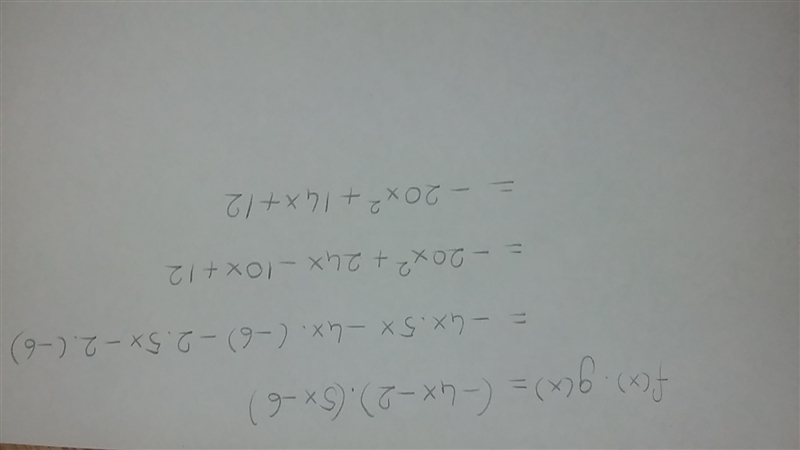 f(x).g(x) = (-4x-2).(5x-6)
= -4x.5x -4x.(-6) -2.5x -2.(-6)
= -20x² + 24x -10x +12
= -20x² + 14x + 12